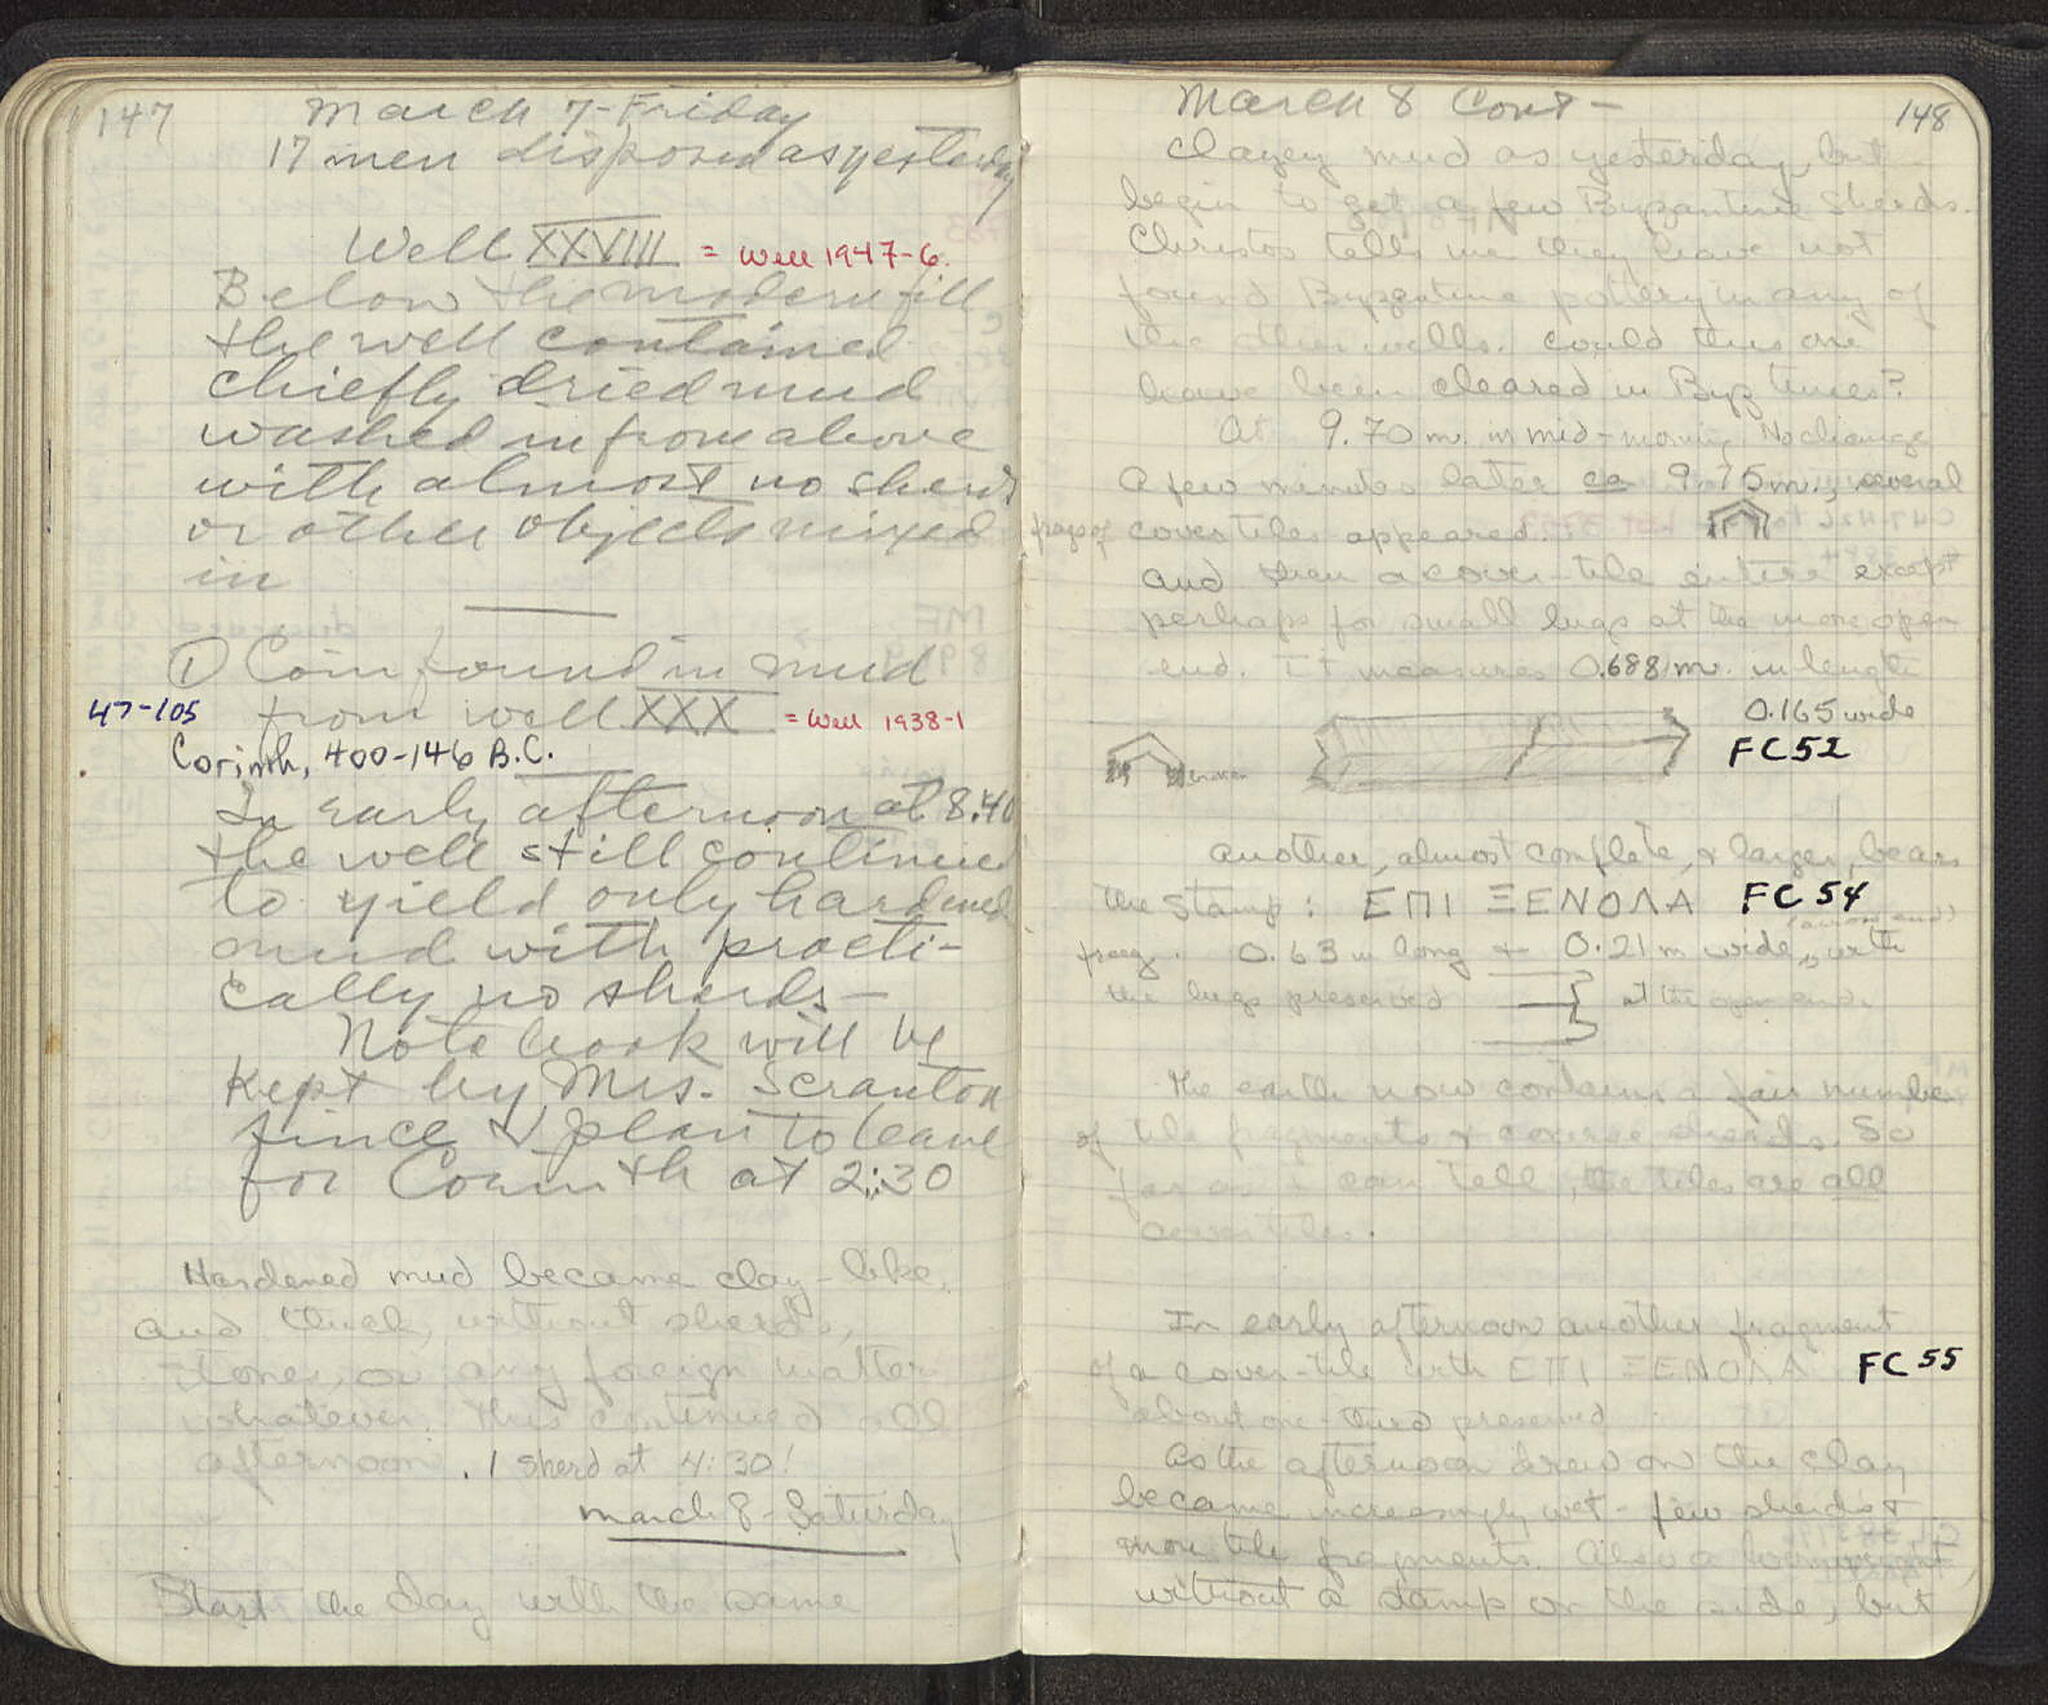 147
March 7 - Friday
17 men disposed as yesterday
Well XXVIII = Well 1947-6.
Below the modern fill
the well contained
chiefly dried mud
washed in from above
with almost no sherds
or other objects mixed
in
① Coin found in mud
47-105 from well XXX = Well 1938-1
Corinth, 400-146 B.C.
In early afternoon at 8.40
the well still continued
to yield only hardened
mud with practi-
cally no sherds -
Notebook will be
kept by Mrs. Scranton
since I plan to leave
for Corinth at 2:30
Hardened mud became clay-like,
and thick, without sherds,
stones, or any foreign matter
whatever. This continued all
afternoon. 1 sherd at 4:30!
March 8 - Saturday
Start the day with the same
March 8 Cont -
148
clayey mud as yesterday, but
begin to get a few Byzantine sherds.
Christos tells me they have not
found Byzantine pottery in any of
the other wells. Could this one
have been cleared in Byz times?
At 9.70 m. in mid-morning No change
A few minutes later ca 9.75 m., several
frags of cover tiles appeared.
and then a cover-tile entire except
perhaps for small lugs at the more open
end. It measures 0.688 m. in length
0.165 wide
FC 52
broken
Another, almost complete, & larger, bears
the stamp: ΕΠΙ ΞΕΝΟΛΑ FC 54
frag. 0.63 m long & 0.21 m wide, with
the lugs preserved at the open end.
The earth now contains a fair number
of tile fragments & coarse sherds. So
far as I can tell, the tiles are all
cover tiles.
In early afternoon another fragment
of a cover-tile with ΕΠΙ ΞΕΝΟΛΑ FC 55
about one-third preserved
As the afternoon drew on the clay
became increasingly wet - few sherds &
more tile fragments. Also a loomweight,
without a stamp on the side, but